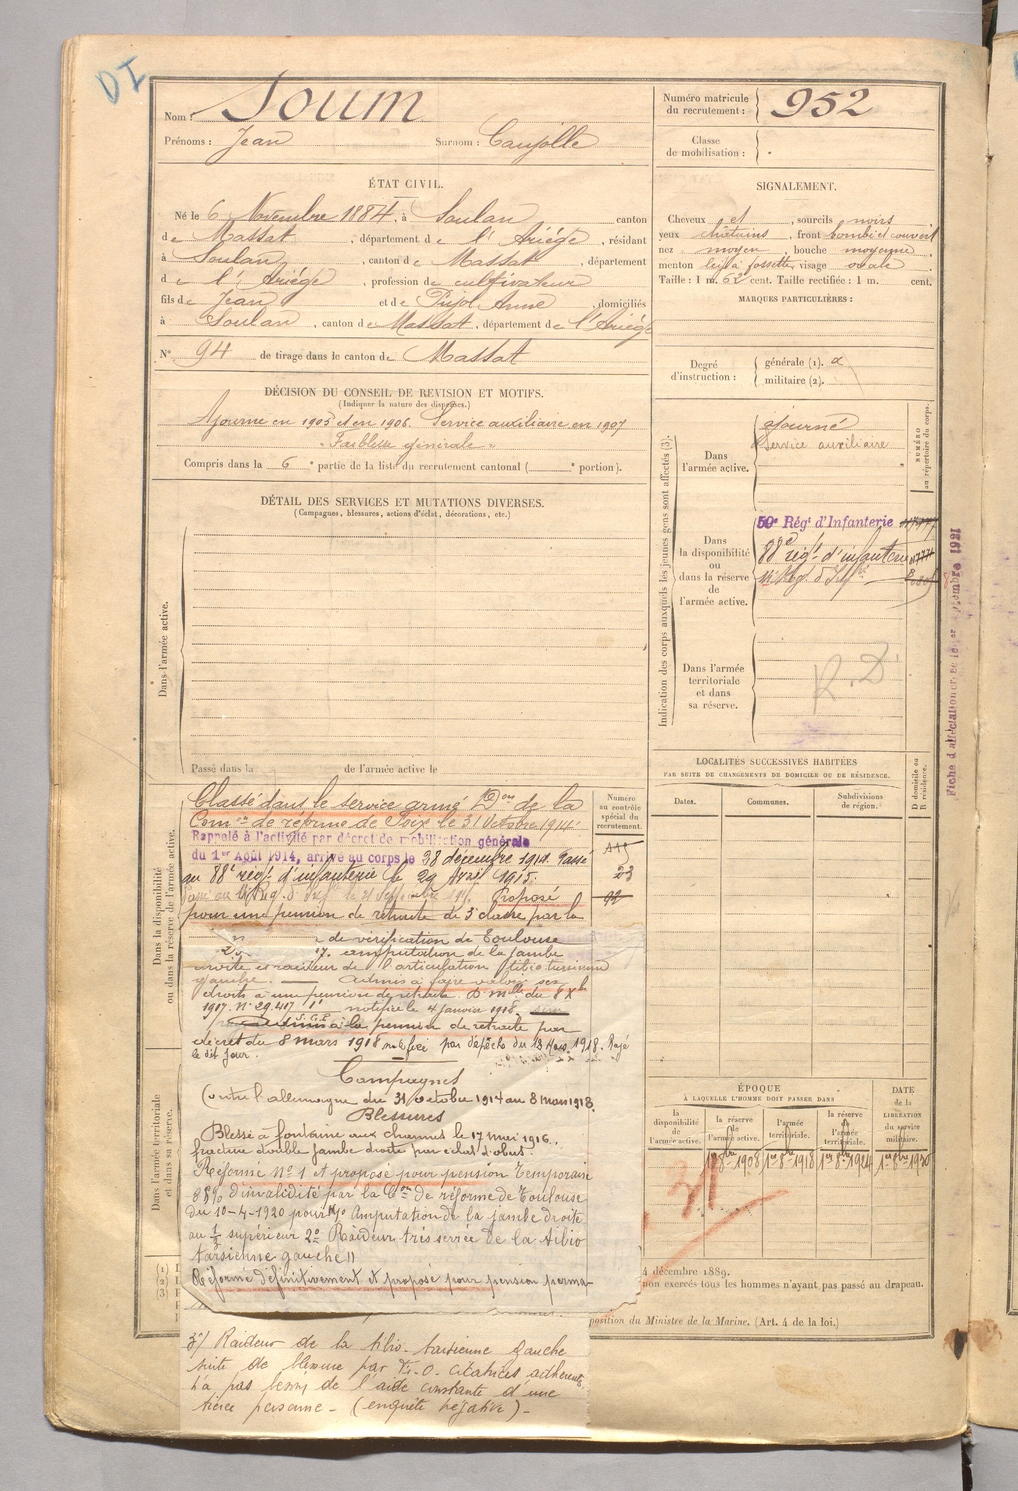 DI
Nom : Soum
Prénoms : Jean Surnom : Caujolle
Numéro matricule du recrutement : 952
Classe de mobilisation :
ÉTAT CIVIL.
Né le 6 Novembre 1884, à Soulan canton
de Massat, département de l'Ariège, résidant
à Soulan, canton de Massat, département
de l'Ariège, profession de cultivateur
fils de Jean et de Pujol Anne, domiciliés
à Soulan, canton de Massat, département de l'Ariège
N° 94 de tirage dans le canton de Massat
SIGNALEMENT.
Cheveux et, sourcils noirs
yeux chatains, front bombé et couvert
nez moyen, bouche moyenne
menton à fossette, visage ovale
Taille : 1 m. 62 cent. Taille rectifiée : 1 m. cent.
MARQUES PARTICULIÈRES :
Degré d'instruction : générale (1).
militaire (2).
DÉCISION DU CONSEIL DE REVISION ET MOTIFS.
(Indiquer la nature des dispenses.)
Ajourné en 1905 et en 1906. Service auxiliaire en 1907
"Faiblesse générale"
Compris dans la 6e partie de la liste du recrutement cantonal ( e portion).
DÉTAIL DES SERVICES ET MUTATIONS DIVERSES.
(Campagnes, blessures, actions d'éclat, décorations, etc.)
Dans l'armée active.
Passé dans la de l'armée active le
Indication des corps auxquels les jeunes gens sont affectés (3).
NUMÉRO au répertoire du corps.
Dans l'armée active.
ajourné
Service auxiliaire
Dans la disponibilité ou dans la réserve de l'armée active.
59e Régt d'Infanterie
88e régt d'infanterie
Dans l'armée territoriale et dans sa réserve.
R.D
Fiche d'affectation
1921
LOCALITÉS SUCCESSIVES HABITÉES
PAR SUITE DE CHANGEMENTS DE DOMICILE OU DE RÉSIDENCE.
Dates. Communes. Subdivisions de région.
D domicile ou R résidence.
Dans la disponibilité ou dans la réserve de l'armée active.
Numéro au contrôle spécial du recrutement.
23
92
Classé dans le service armé Don de la
Comon de réforme de Foix le 31 Octobre 1914
Rappelé à l'activité par décret de mobilisation générale
du 1er Août 1914, arrivé au corps le 28 décembre 1914. Passé
au 88e régt d'infanterie le 29 Avril 1915.
Proposé
pour une pension de retraite de 3e classe par la
de vérification de Toulouse
amputation de la jambe
droite et raideur de l'articulation tibio tarsienne
gauche. Admis à faire valoir ses
droits à une pension de retraite. D. mlle du 8 Xbre
1917. N° 29.417 notifiée le 4 janvier 1918.
à la pension de retraite par
décret du 8 mars 1918 notifié par dépêche du 13 Mars 1918. Rayé
le dit jour.
Campagnes
Contre l'allemagne du 31 octobre 1914 au 8 mars 1918.
Blessures
Blessé à fontaine aux charmes le 17 mai 1916.
fracture double jambe droite par éclat d'obus.
Réformé N° 1 et proposé pour pension Temporaire
85% d'invalidité par la Con de réforme de Toulouse
du 10-4-1920 pour 1° Amputation de la jambe droite
au 1/2 supérieur 2° Raideur très serrée de la tibio
tarsienne gauche "
Réformé définitivement et proposé pour pension perma-
3°) Raideur de la tibio-tarsienne gauche
suite de blessure par E.O. cicatrices adhérentes,
n'a pas besoin de l'aide constante d'une
tierce personne - (enquête négative) -
Dans l'armée territoriale et dans sa réserve.
ÉPOQUE
À LAQUELLE L'HOMME DOIT PASSER DANS
la disponibilité de l'armée active. la réserve de l'armée active. l'armée territoriale. la réserve de l'armée territoriale.
DATE de la LIBÉRATION du service militaire.
1er 8bre 1908 1er 8bre 1918 1er 8bre 1924 1er 8bre 1930
31
4 décembre 1889.
non exercés tous les hommes n'ayant pas passé au drapeau.
position du Ministre de la Marine. (Art. 4 de la loi.)
(1)
(2)
(3)